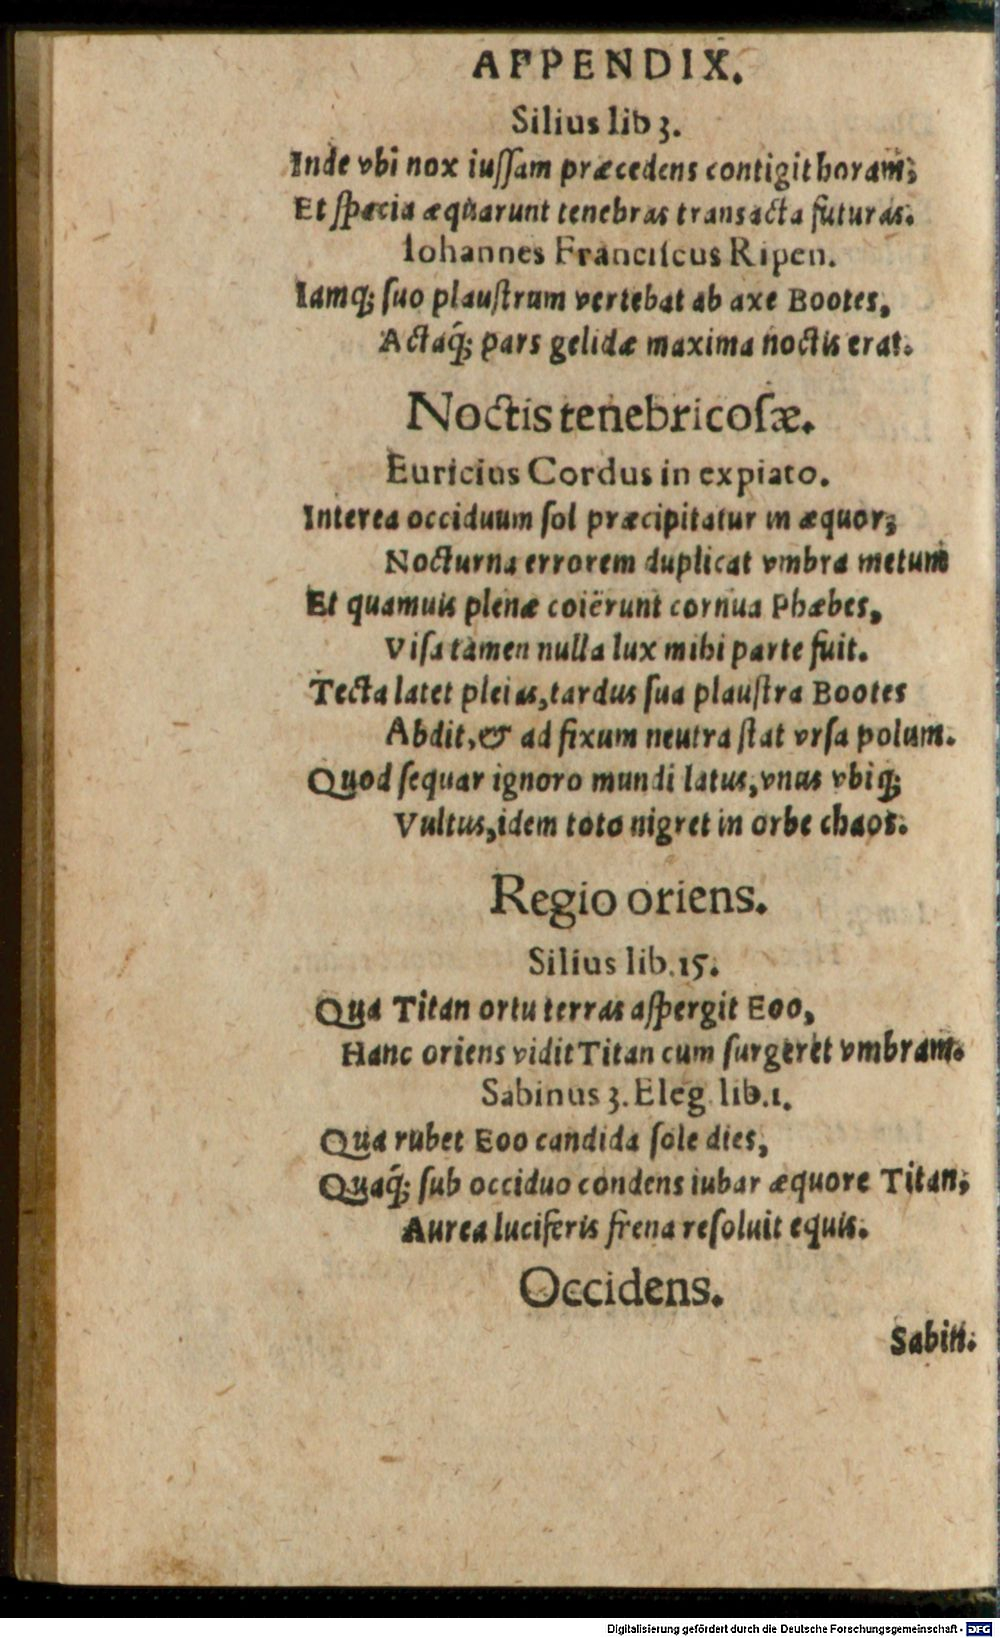 APPENDIX.
Silius lib 3.
Inde vbi nox iuſſam præcedens contigit horam;
Et ſpacia æquarunt tenebras transacta futuras.
Iohannes Franciſcus Ripen.
Iamq; ſuo plauſtrum vertebat ab axe Bootes,
Actaq́; pars gelidæ maxima noctis erat.
Noctis tenebricoſæ.
Euricius Cordus in expiato.
Interea occiduum ſol præcipitatur in æquor;
Nocturna errorem duplicat vmbra metum
Et quamuis plenæ coiërunt cornua Phæbes,
Viſa tamen nulla lux mihi parte fuit.
Tecta latet pleias, tardus ſua plauſtra Bootes
Abdit, & ad fixum neutra ſtat vrſa polum.
Quod ſequar ignoro mundi latus, vnus vbiq;
Vultus, idem toto nigret in orbe chaos.
Regio oriens.
Silius lib. 15.
Qua Titan ortu terras aſpergit Eoo,
Hanc oriens vidit Titan cum ſurgeret vmbram.
Sabinus 3. Eleg. lib. 1.
Qua rubet Eoo candida ſole dies,
Quaq́; ſub occiduo condens iubar æquore Titan;
Aurea luciferis frena reſoluit equis.
Occidens.
Sabin.
Digitalisierung gefördert durch die Deutsche Forschungsgemeinschaft - DFG